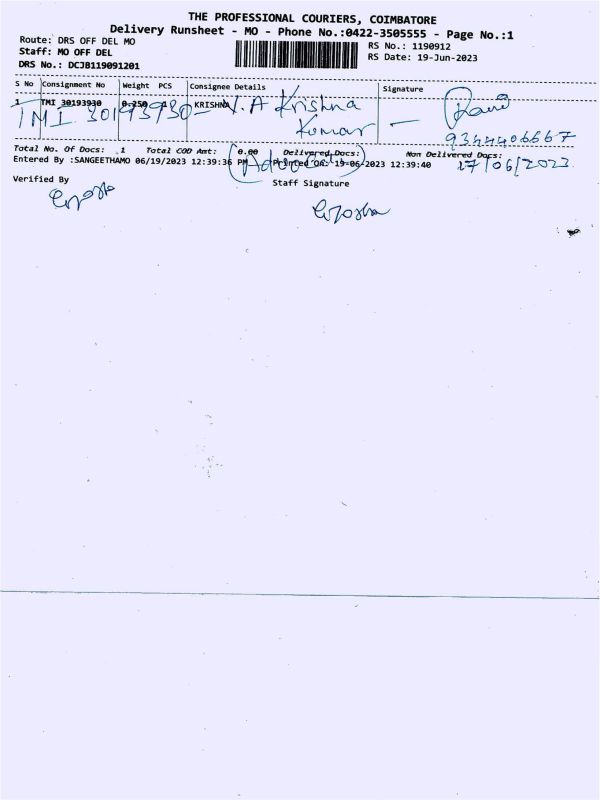 THE PROFESSIONAL COURIERS, COIMBATORE
Delivery Runsheet - MO - Phone No.:0422-3505555 - Page No.:1
Route: DRS OFF DEL MO
Staff: MO OFF DEL
DRS No.: DCJB119091201
RS No.: 1190912
RS Date: 19-Jun-2023
S No Consignment No Weight PCS Consignee Details Signature
1 TMI 30193930 0.250 1 KRISHNA
TMI 30193930 - V. A Krishna
Kumar -
9344406667
Total No. Of Docs: 1 Total COD Amt: 0.00 Delivered Docs: Non Delivered Docs:
Entered By :SANGEETHAMO 06/19/2023 12:39:36 PM Printed On: 19-06-2023 12:39:40
27/06/2023
Verified By
Staff Signature